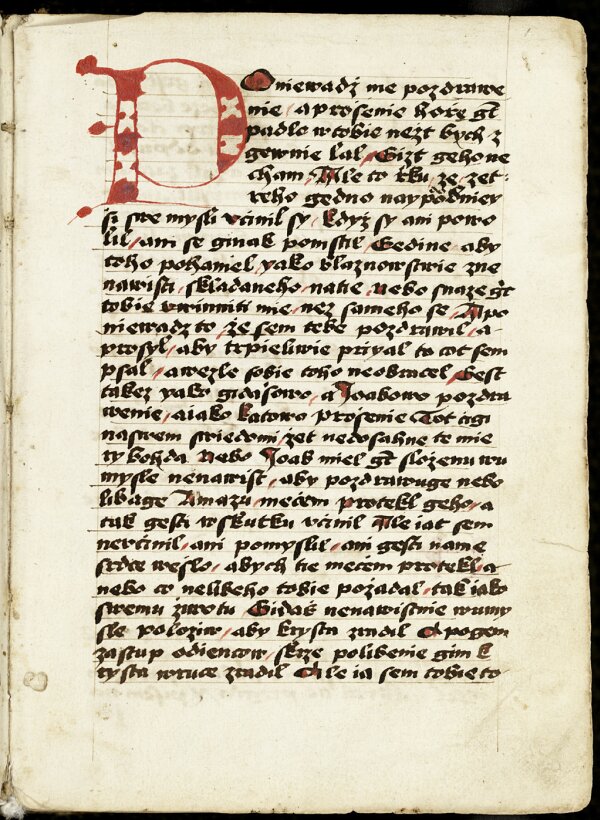 Poniewadż me pozdrawe
nie / a prosenie horże gt
padlo w tobie nezt bych z
gewnie lal / Gizt geho ne
cham / Ale to rku ze zet
reho gedno naypoklniey
ssi swe mysli vcinil sy / kdyż sy ani powo
lil / ani se ginak pomstil Gedine aby
toho pohaniel yako blaznowstwie zne
nawisti skladaneho na tie Nebo snaze gt
tobie vwiniti mie nez sameho se A po
niewadz to / że sem tebe pozdrawil / a
prosyl / aby trpieliwie priyal to cot sem
psal / a wezle sobie toho neobracel Gest
takez yako gidasowo / a Joabowo pozdra
wenie / a iako katowo prosenie Tot čigi
nastwem swiedomi / żet nedosahne te mie
ry kohda Nebo Joab miel gt slożenu wu
mysle nenawist / aby pozdrawuge nebo
libage Amazu / mečem protekl geho / a
tak gesti w skutku vcinil Ale iat sem
nevcinil / ani pomyslil / ani gesti na me
srdce weslo / abych tie mecem protekl / a
nebo co neliбeho tobie pożadal / tak iako
swemu żiwotu Gidaš nenawistnie w umy
sle polożiw / aby krysta zradil A pogem
zastup odiencow / skrze polibenie gim k
rysta w ruce zradil Ale ia sem tobie to